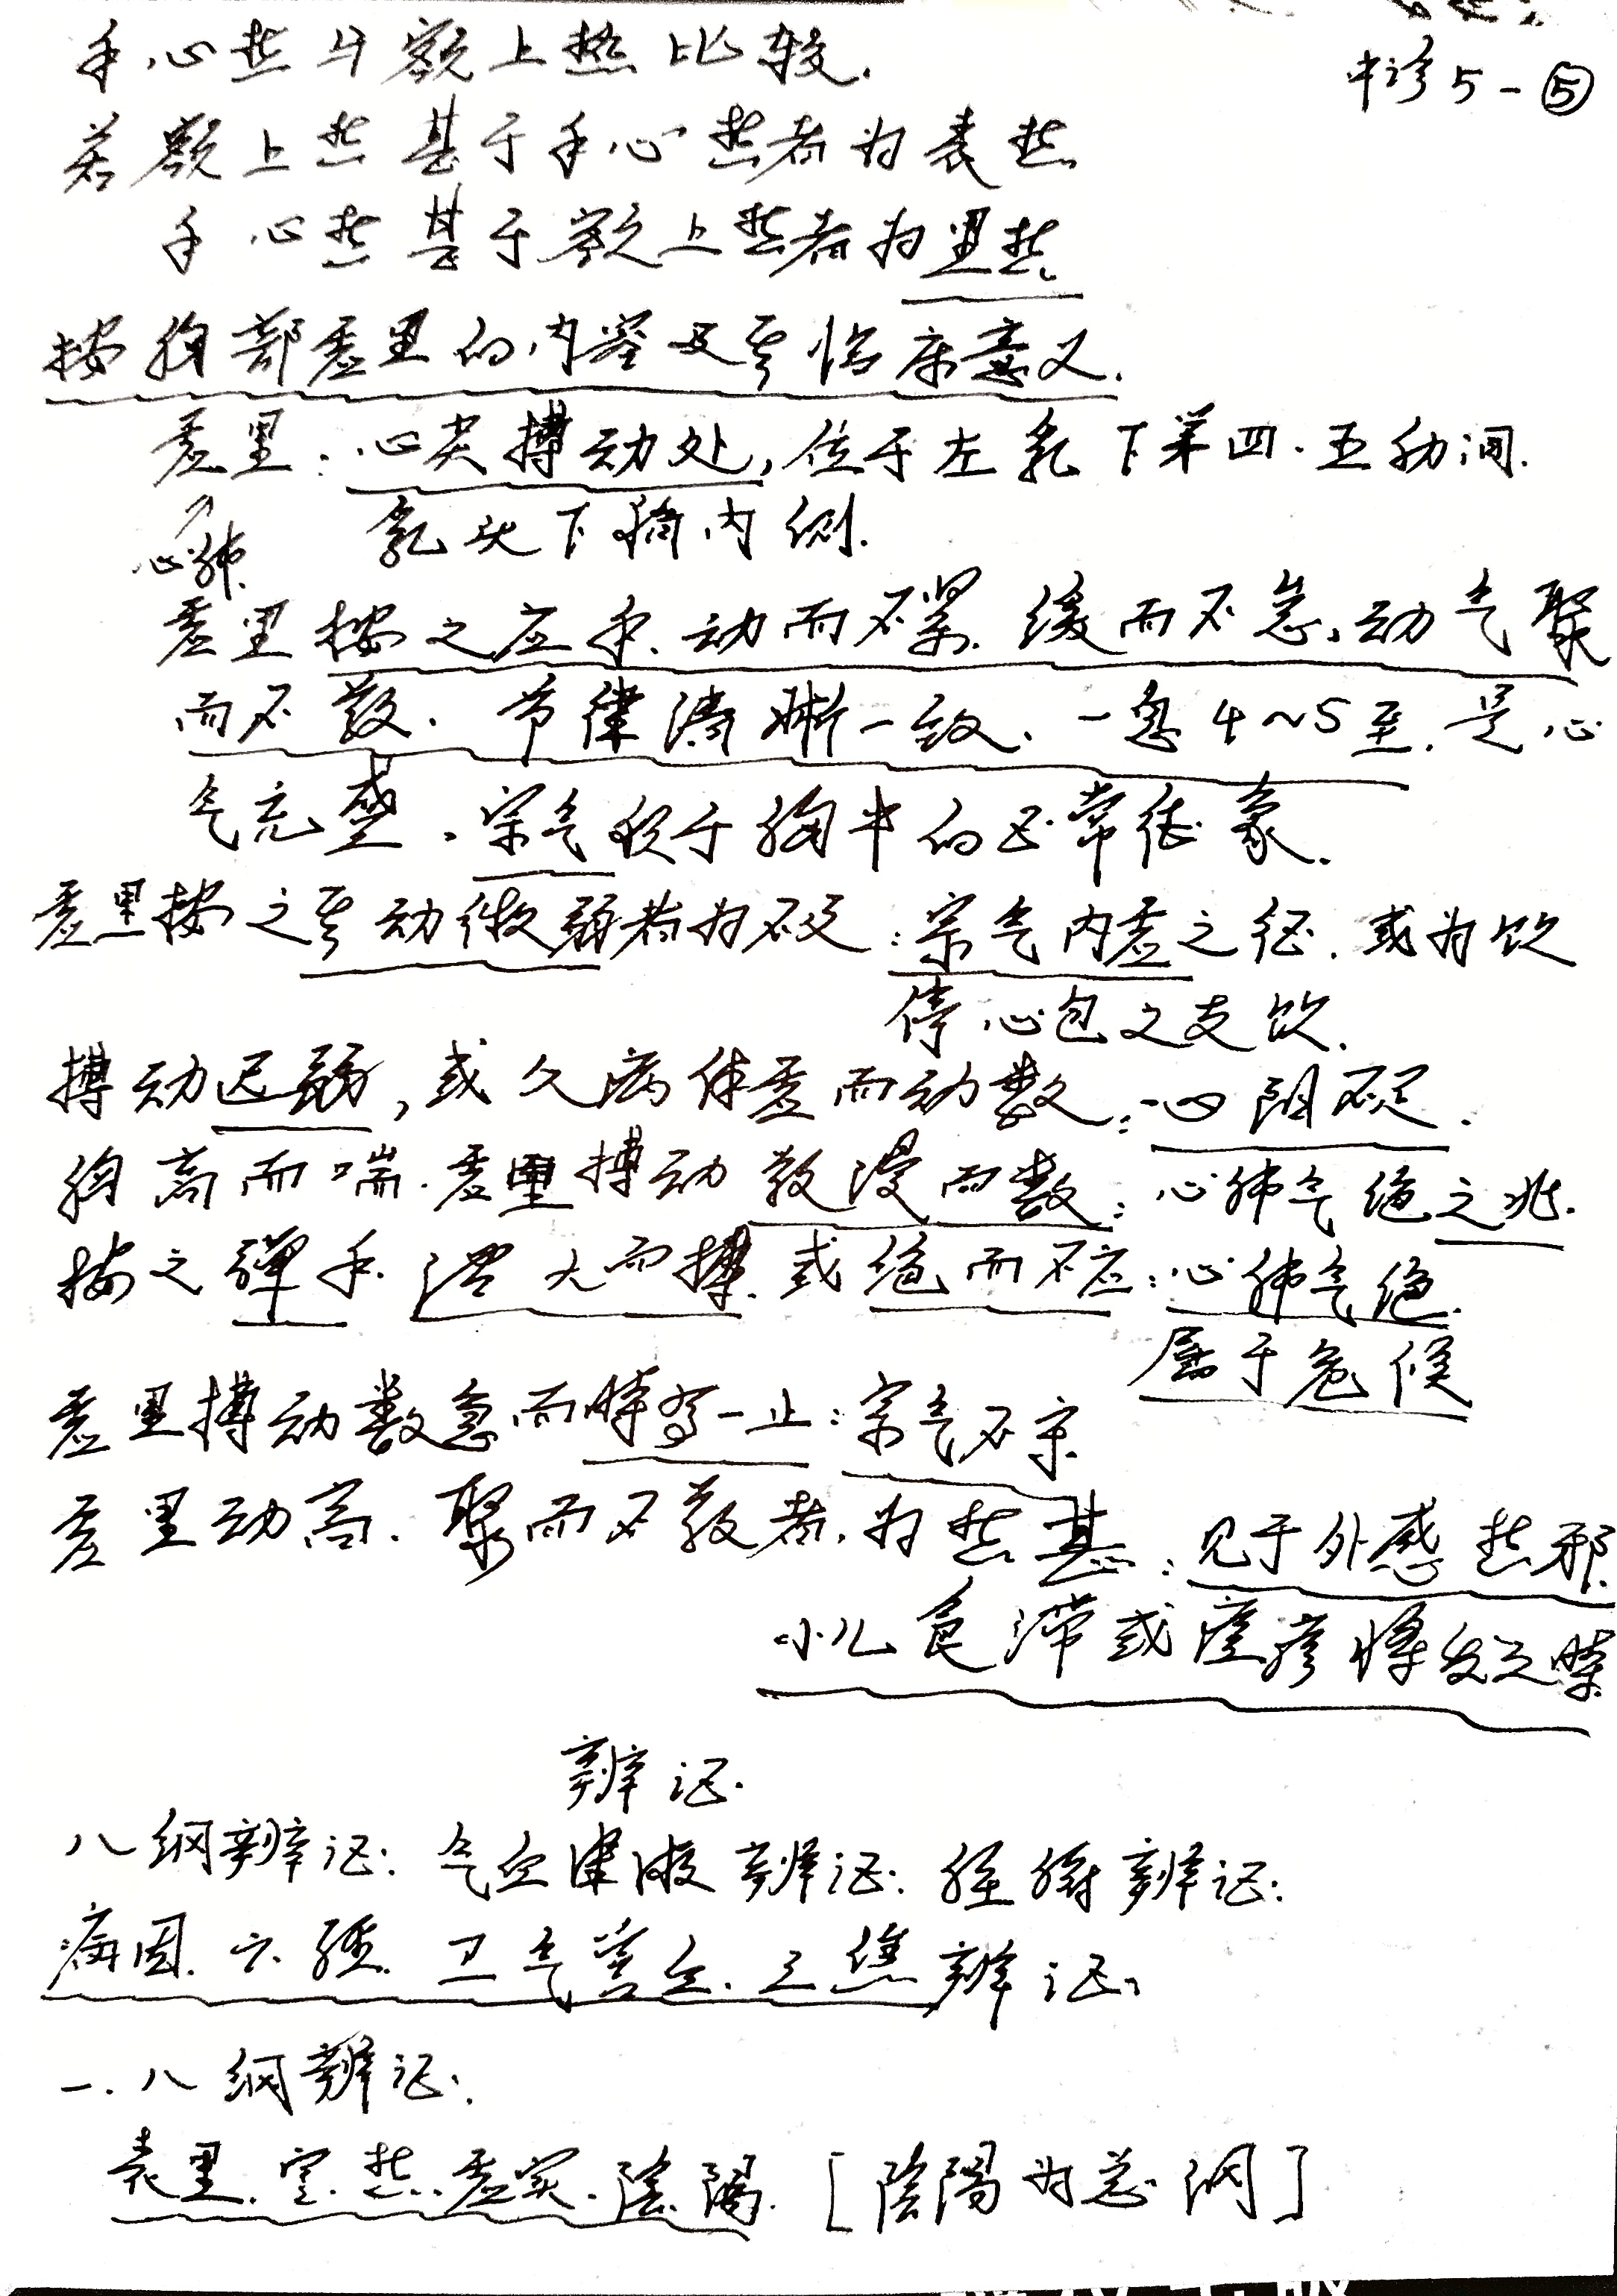 中诊5-⑤
手心热与额上热比较.
若额上热甚于手心热者为表热
手心热甚于额上热者为里热.
按胸部虚里的内容及其临床意义.
虚里:心尖搏动处,位于左乳下第四.五肋间.
乳头下稍内侧.
心肺.
虚里按之应手.动而不紧.缓而不怠.动气聚
而不散.节律清晰一致.一息4~5至.是心
气充盛.宗气积于胸中的正常征象.
虚里按之其动微弱者为不及:宗气内虚之征.或为饮
停心包之支饮.
搏动迟弱,或久病体虚而动数:心阳不足.
胸高而喘.虚里搏动散漫而数:心肺气绝之兆.
按之弹手.洪大而搏.或绝而不应:心肺气绝.
属于危候
虚里搏动数急而时有一止:宗气不守.
虚里动高.聚而不散者.为热甚:见于外感热邪.
小儿食滞或痘疹将发之时
辨证.
八纲辨证:气血津液辨证:脏腑辨证:
病因.六经.卫气营血.三焦辨证.
一.八纲辨证.
表里.寒.热.虚实.陰陽.[陰陽为总纲]